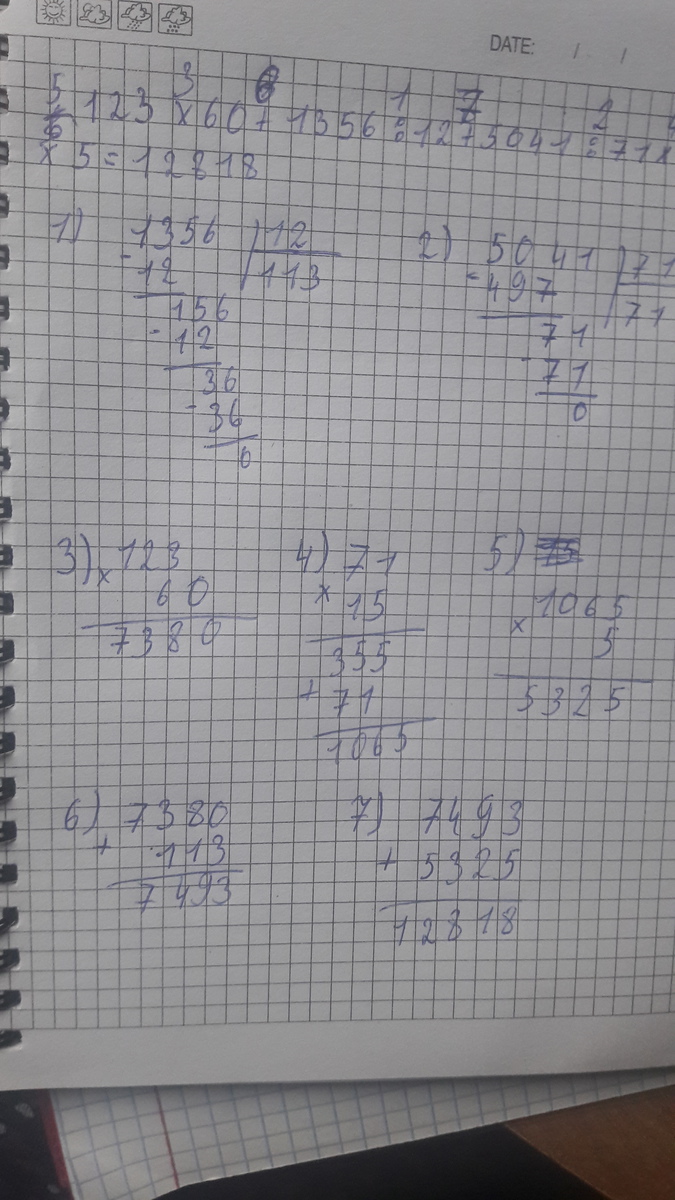 DATE: / /
5 3 6 1 7 2 4
123 x 60 + 1356 : 12 + 5041 : 71 x
x 5 = 12818
1) 1356 | 12
- 12 113
156
- 12
36
- 36
0
2) 5041 | 71
- 497 71
71
- 71
0
3) x 123
60
7380
4) 71
x 15
355
+ 71
1065
5)
1065
x 5
5325
6) 7380
+ 113
7493
7) 7493
+ 5325
12818